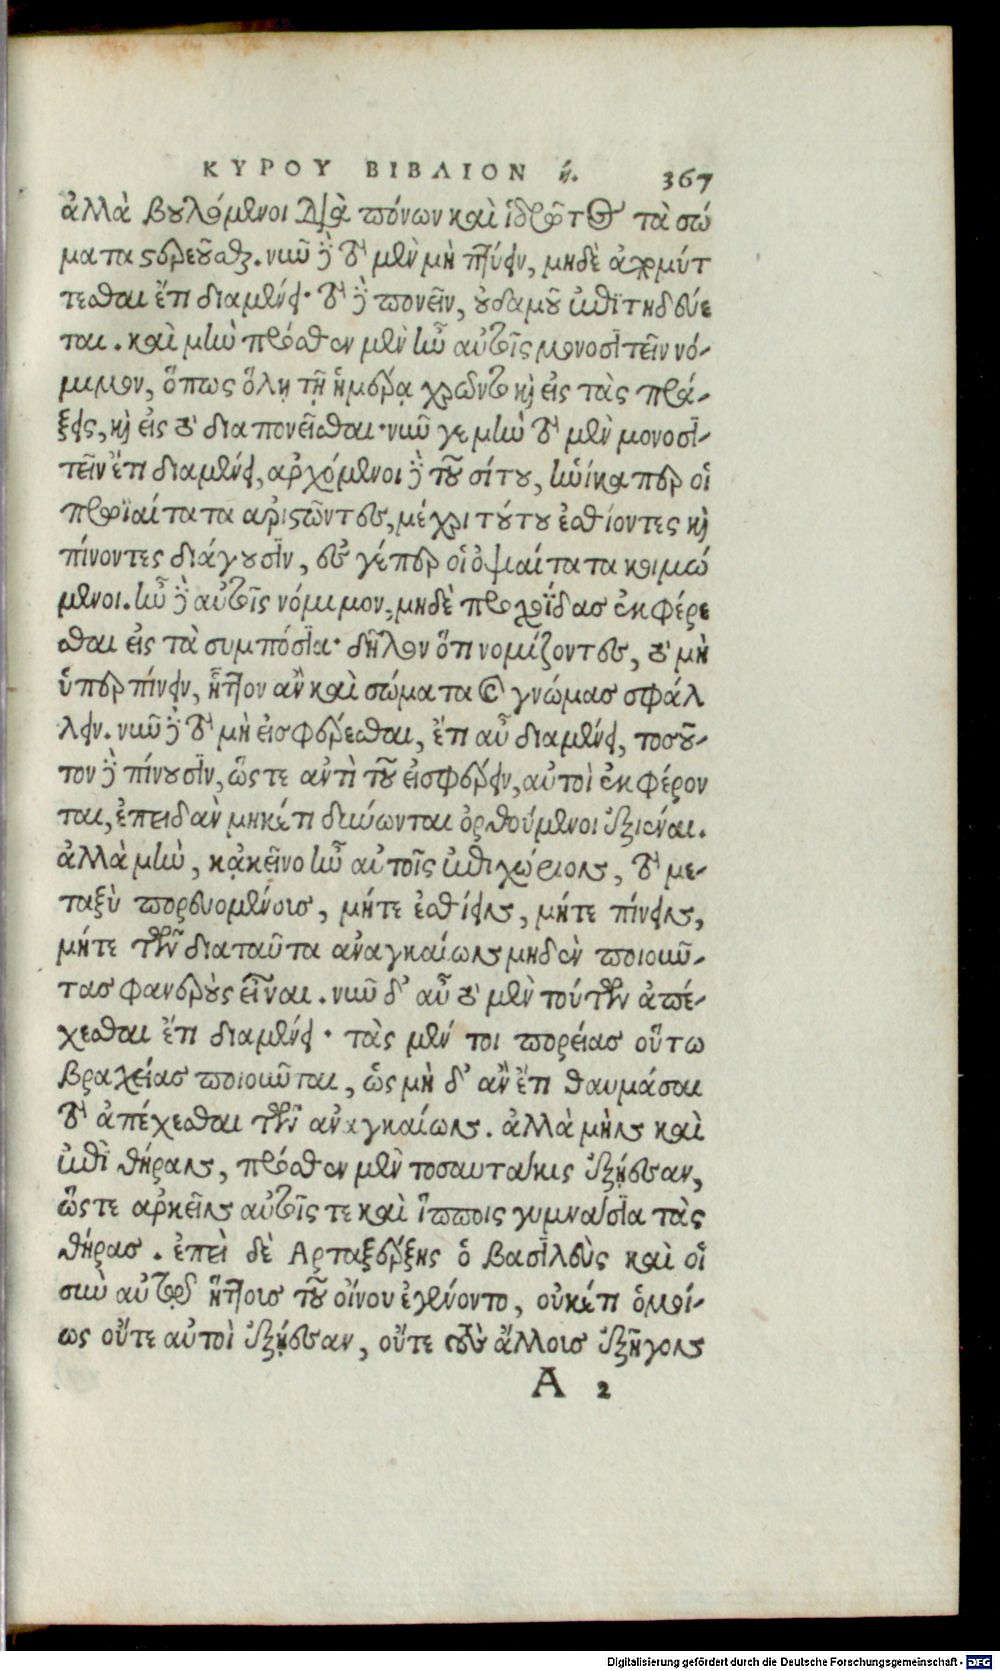 ΚΥΡΟΥ ΒΙΒΛΙΟΝ η. 367
ἀλλὰ βουλόμενοι διὰ πόνων καὶ ἱδρῶτος τὰ σώ
ματα στερεοῦσθαι. νῦν δὲ τὸ μὲν μὴ πτύειν, μηδὲ ἀπομύτ
τεσθαι ἔτι διαμένει· τὸ δὲ πονεῖν, οὐδαμοῦ ἐπιτηδεύε
ται. καὶ μὴν πρόσθεν μὲν ἦν αὐτοῖς μονοσιτεῖν νό-
μιμον, ὅπως ὅλῃ τῇ ἡμέρᾳ χρῷντο καὶ εἰς τὰς πρά-
ξεις, καὶ εἰς τὸ διαπονεῖσθαι· νῦν γε μὴν τὸ μὲν μονοσι-
τεῖν ἔτι διαμένει, ἀρχόμενοι δὲ τοῦ σίτου, ἡνίκα περ οἱ
πρωϊαίτατα ἀριστῶντες, μέχρι τούτου ἐσθίοντες καὶ
πίνοντες διάγουσιν, ἔς γέ περ οἱ ὀψιαίτατα κοιμώ
μενοι. ἦν δὲ αὐτοῖς νόμιμον, μηδὲ προχοΐδας ἐκφέρε
σθαι εἰς τὰ συμπόσια· δῆλον ὅτι νομίζοντες, τὸ μὴ
ὑπερπίνειν, ἧττον ἂν καὶ σώματα καὶ γνώμας σφάλ
λειν. νῦν δὲ τὸ μὴ εἰσφέρεσθαι, ἔτι αὖ διαμένει, τοσοῦ-
τον δὲ πίνουσιν, ὥστε ἀντὶ τοῦ εἰσφέρειν, αὐτοὶ ἐκφέρον
ται, ἐπειδὰν μηκέτι δύνωνται ὀρθούμενοι ἐξιέναι.
ἀλλὰ μὴν, κἀκεῖνο ἦν αὐτοῖς ἐπιχώριον, τὸ με-
ταξὺ πορευομένοις, μήτε ἐσθίειν, μήτε πίνειν,
μήτε τῶν διαταῦτα ἀναγκαίων μηδὲν ποιοῦν-
τας φανεροὺς εἶναι. νῦν δ' αὖ τὸ μὲν τούτων ἀπέ-
χεσθαι ἔτι διαμένει· τὰς μέν τοι πορείας οὕτω
βραχείας ποιοῦνται, ὡς μὴ δ' ἂν ἔτι θαυμάσαι
τὸ ἀπέχεσθαι τῶν ἀναγκαίων. ἀλλὰ μὴν καὶ
ἐπὶ θήραν, πρόσθεν μὲν τοσαυτάκις ἐξῄεσαν,
ὥστε ἀρκεῖν αὐτοῖς τε καὶ ἵπποις γυμνάσια τὰς
θήρας. ἐπεὶ δὲ Ἀρταξέρξης ὁ βασιλεὺς καὶ οἱ
σὺν αὐτῷ ἥττοις τοῦ οἴνου ἐγένοντο, οὐκέτι ὁμοί-
ως οὔτε αὐτοὶ ἐξῄεσαν, οὔτε τοὺς ἄλλοις ἐξῆγον
A 2
Digitalisierung gefördert durch die Deutsche Forschungsgemeinschaft - DFG